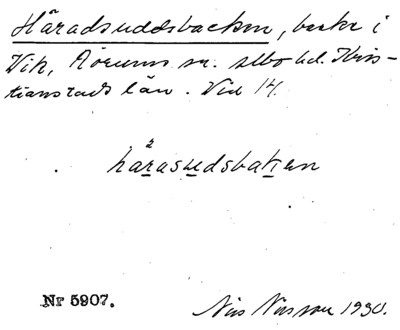 Häradsuddsbacken, backe i
Vik, Rörums sn. Albo hd. Kris-
tianstads län. Vid 14.
härasudsbaken
Nr 5907.
Nils Nilsson 1930.